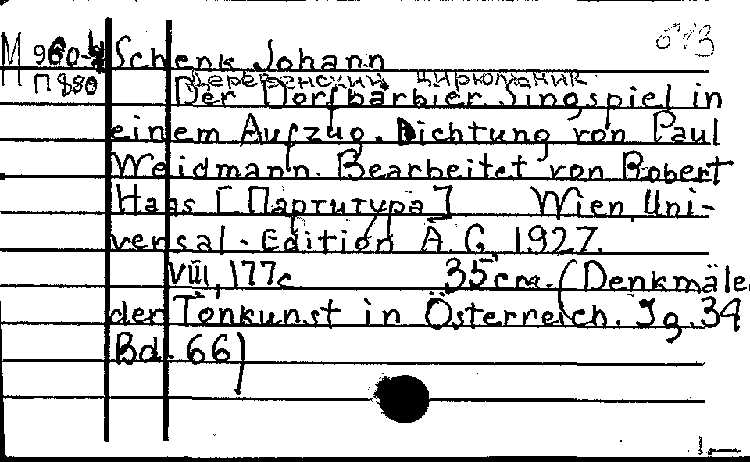 М 960-4 Schenk Johann
П 880 Деревенский цирюльник
Der Dorfbarbier. Singspiel in
einem Aufzug. Dichtung von Paul
Weidmann. Bearbeitet von Robert
Haas [Партитура] Wien, Uni-
versal-Edition A.G. 1927.
VIII, 177 с 35 cm. (Denkmäler
der Tonkunst in Österreich. Jg. 34
Bd. 66)